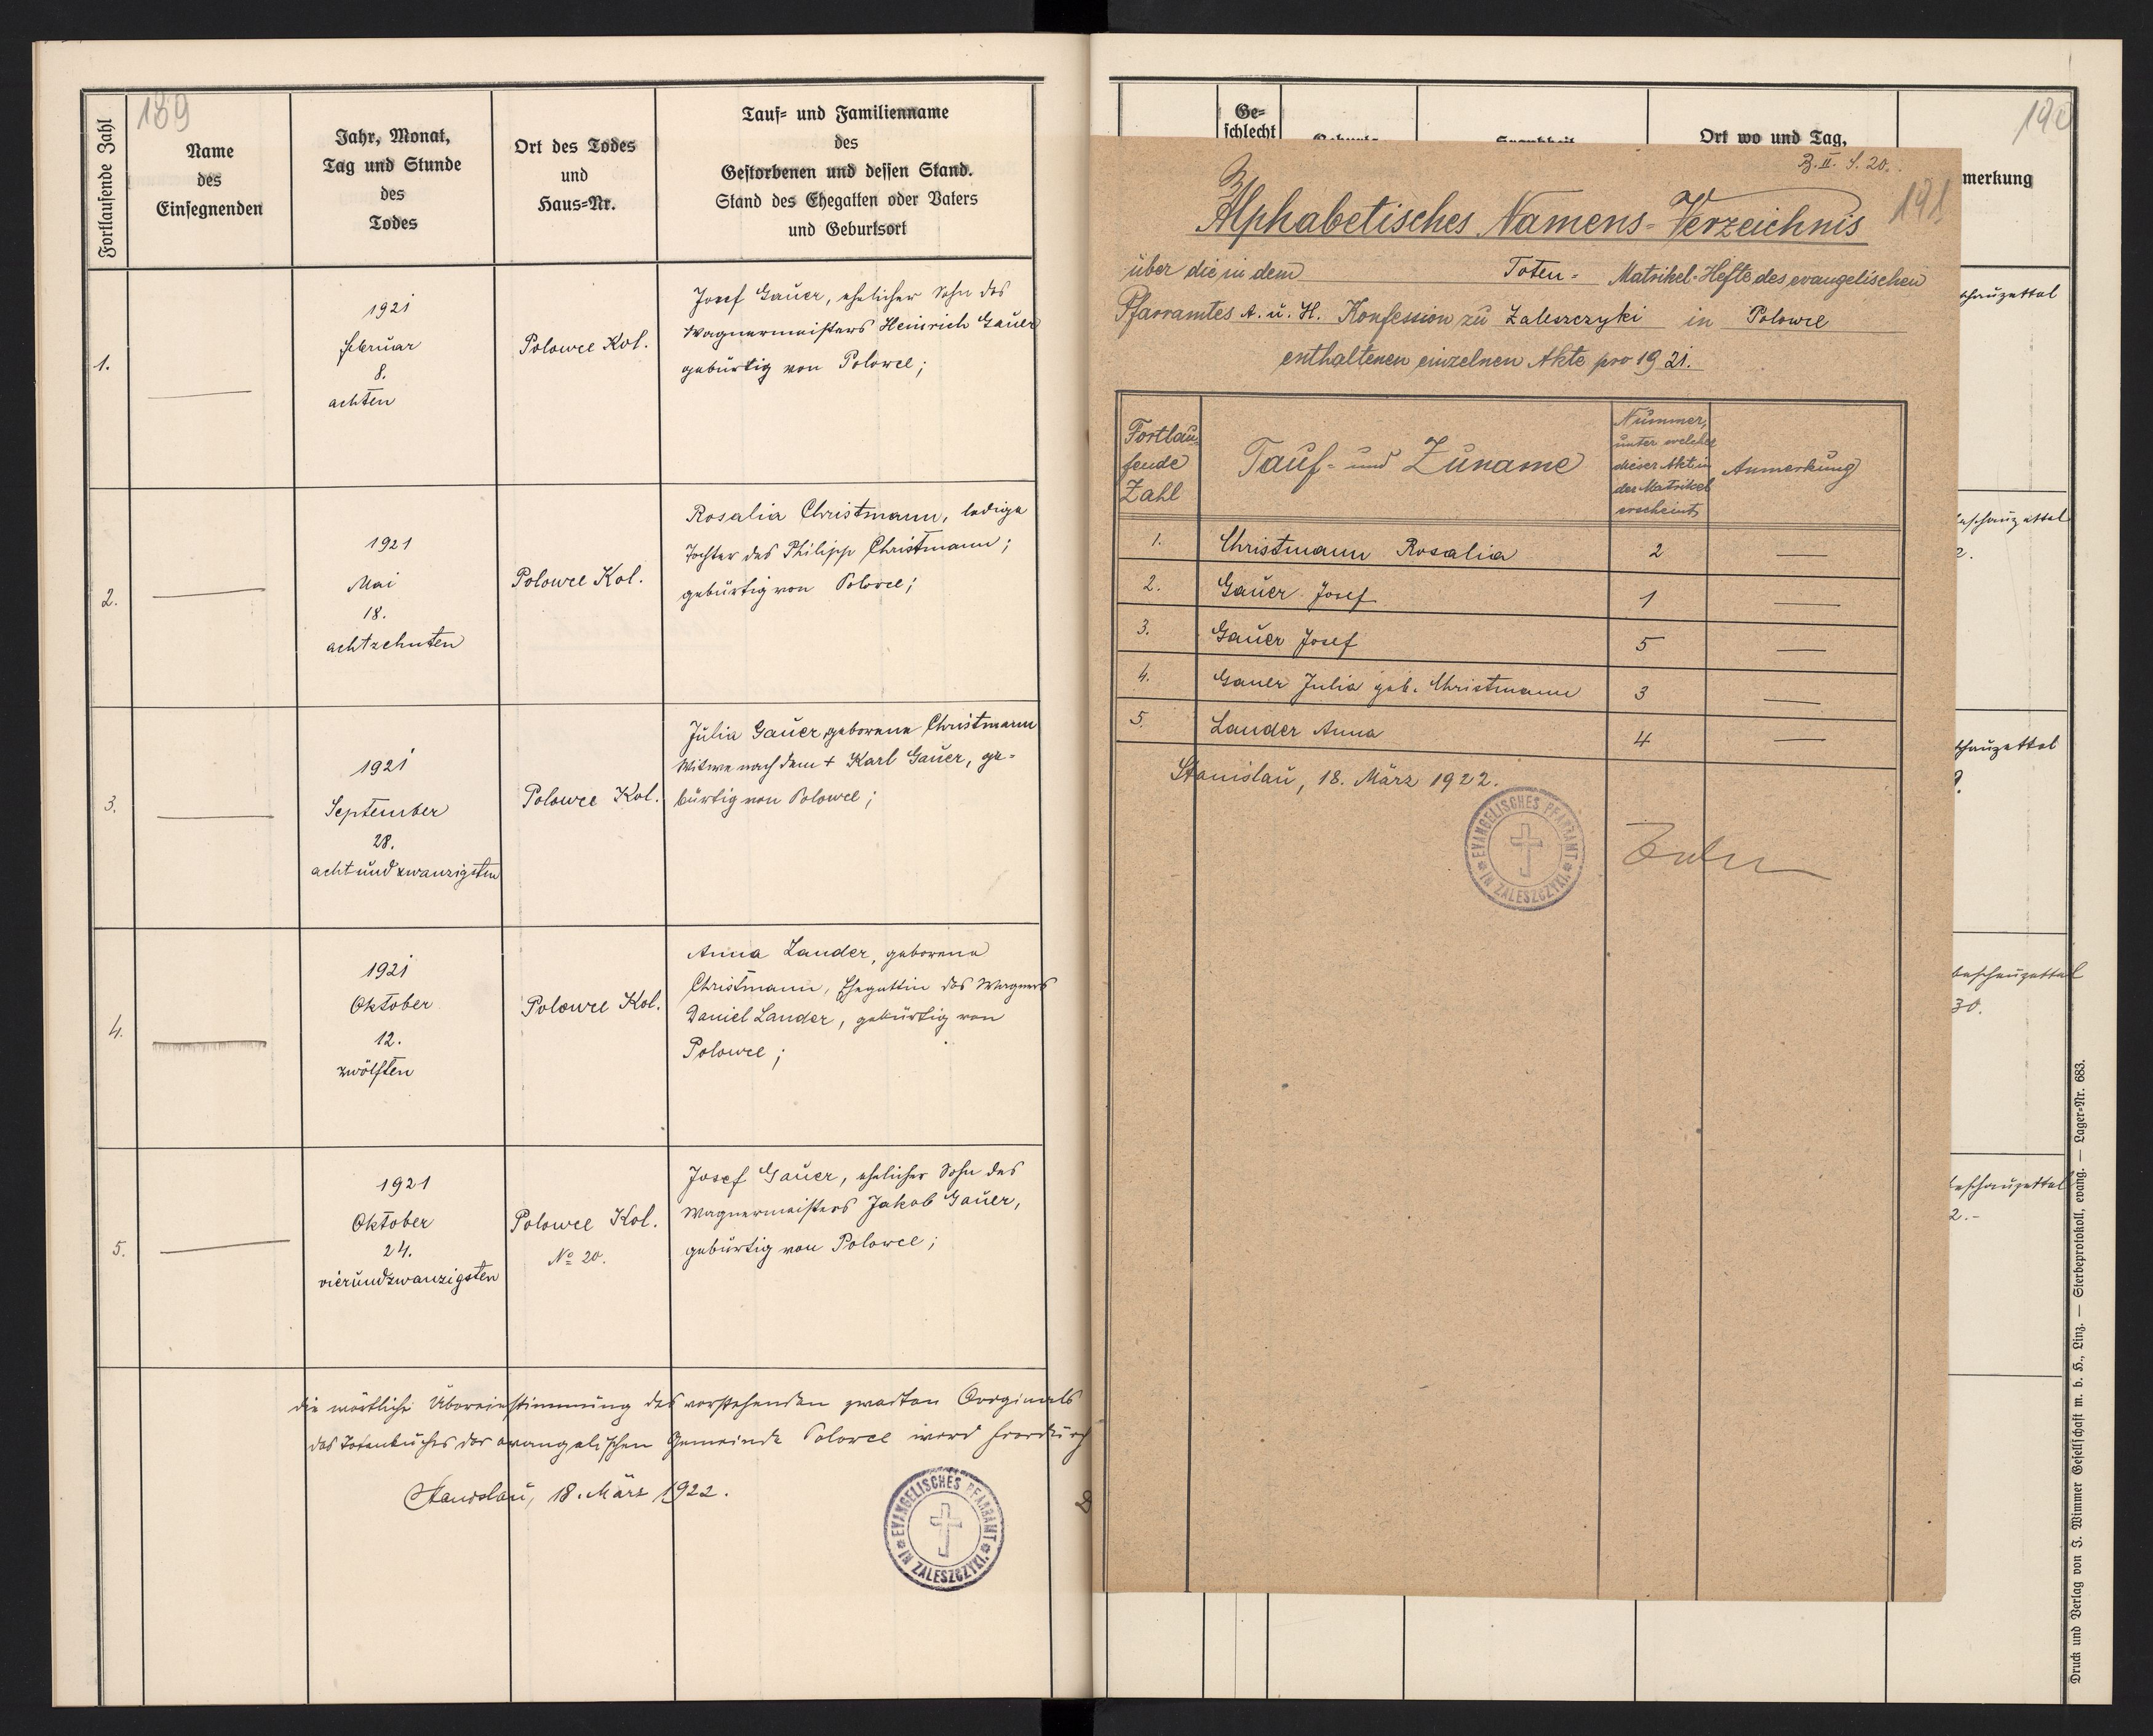 189
Fortlaufende Zahl
Name
des
Einsegnenden
Jahr, Monat,
Tag und Stunde
des
Todes
Ort des Todes
und
Haus=Nr.
Tauf= und Familienname
des
Gestorbenen und dessen Stand.
Stand des Ehegatten oder Vaters
und Geburtsort
1.
1921
Februar
8.
achten
Polowce Kol.
Josef Gauer, ehelicher Sohn des
Wagnermeisters Heinrich Gauer
gebürtig von Polowce;
2.
1921
Mai
18.
achtzehnten
Polowce Kol.
Rosalia Christmann, ledige
Tochter des Philipp Christmann;
gebürtig von Polowce;
3.
1921
September
28.
achtundzwanzigsten
Polowce Kol.
Julia Gauer, geborene Christmann
Witwe nach dem + Karl Gauer, ge=
bürtig von Polowce;
4.
1921
Oktober
12.
zwölften
Polowce Kol.
Anna Lander, geborene
Christmann, Ehegattin des Wagners
Daniel Lander, gebürtig von
Polowce;
5.
1921
Oktober
24.
vierundzwanzigsten
Polowce Kol.
No 20.
Josef Gauer, ehelicher Sohn des
Wagnermeisters Jakob Gauer,
gebürtig von Polowce;
die wörtliche Übereinstimmung des vorstehenden zweiten Originals
des Totenbuches der evangelischen Gemeinde Polowce wird hierdurch
Stanislau, 18. März 1922.
EVANGELISCHES PFARRAMT IN ZALESZCZYKI.
190
Ge=
schlecht
Ort wo und Tag,
merkung
B. II. S. 20.
191
Alphabetisches Namens=Verzeichnis
über die in dem Toten= Matrikel=Hefte des evangelischen
Pfarramtes A. u. H. Konfession zu Zaleszczyki in Polowce
enthaltenen einzelnen Akte pro 1921.
Fortlau=
fende
Zahl
Tauf= und Zuname
Nummer,
unter welcher
dieser Akt in
der Matrikel
erscheint
Anmerkung
1. Christmann Rosalia 2 —
2. Gauer Josef 1 —
3. Gauer Josef 5 —
4. Gauer Julia geb. Christmann 3 —
5. Lander Anna 4 —
Stanislau, 18. März 1922.
EVANGELISCHES PFARRAMT IN ZALESZCZYKI.
30.
2.-
Druck und Verlag von J. Wimmer Gesellschaft m. b. H., Linz. — Sterbeprotokoll, evang. — Lager=Nr. 683.